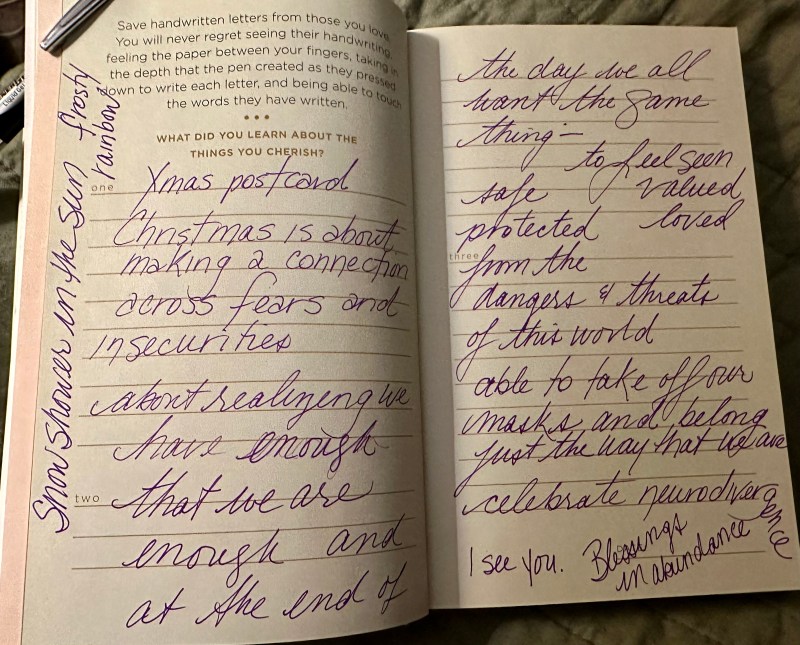 Save handwritten letters from those you love.
You will never regret seeing their handwriting,
feeling the paper between your fingers, taking in
the depth that the pen created as they pressed
down to write each letter, and being able to touch
the words they have written.
WHAT DID YOU LEARN ABOUT THE
THINGS YOU CHERISH?
one
Xmas postcard
Christmas is about
making a connection
across fears and
insecurities
about realizing we
have enough
two
that we are
enough and
at the end of
Snow shower in the sun frosty
rainbow
the day we all
want the same
thing —
to feel seen
safe valued
protected loved
three
from the
dangers & threats
of this world
able to take off our
masks and belong
just the way that we are
celebrate neurodivergence
I see you. Blessings
in abundance